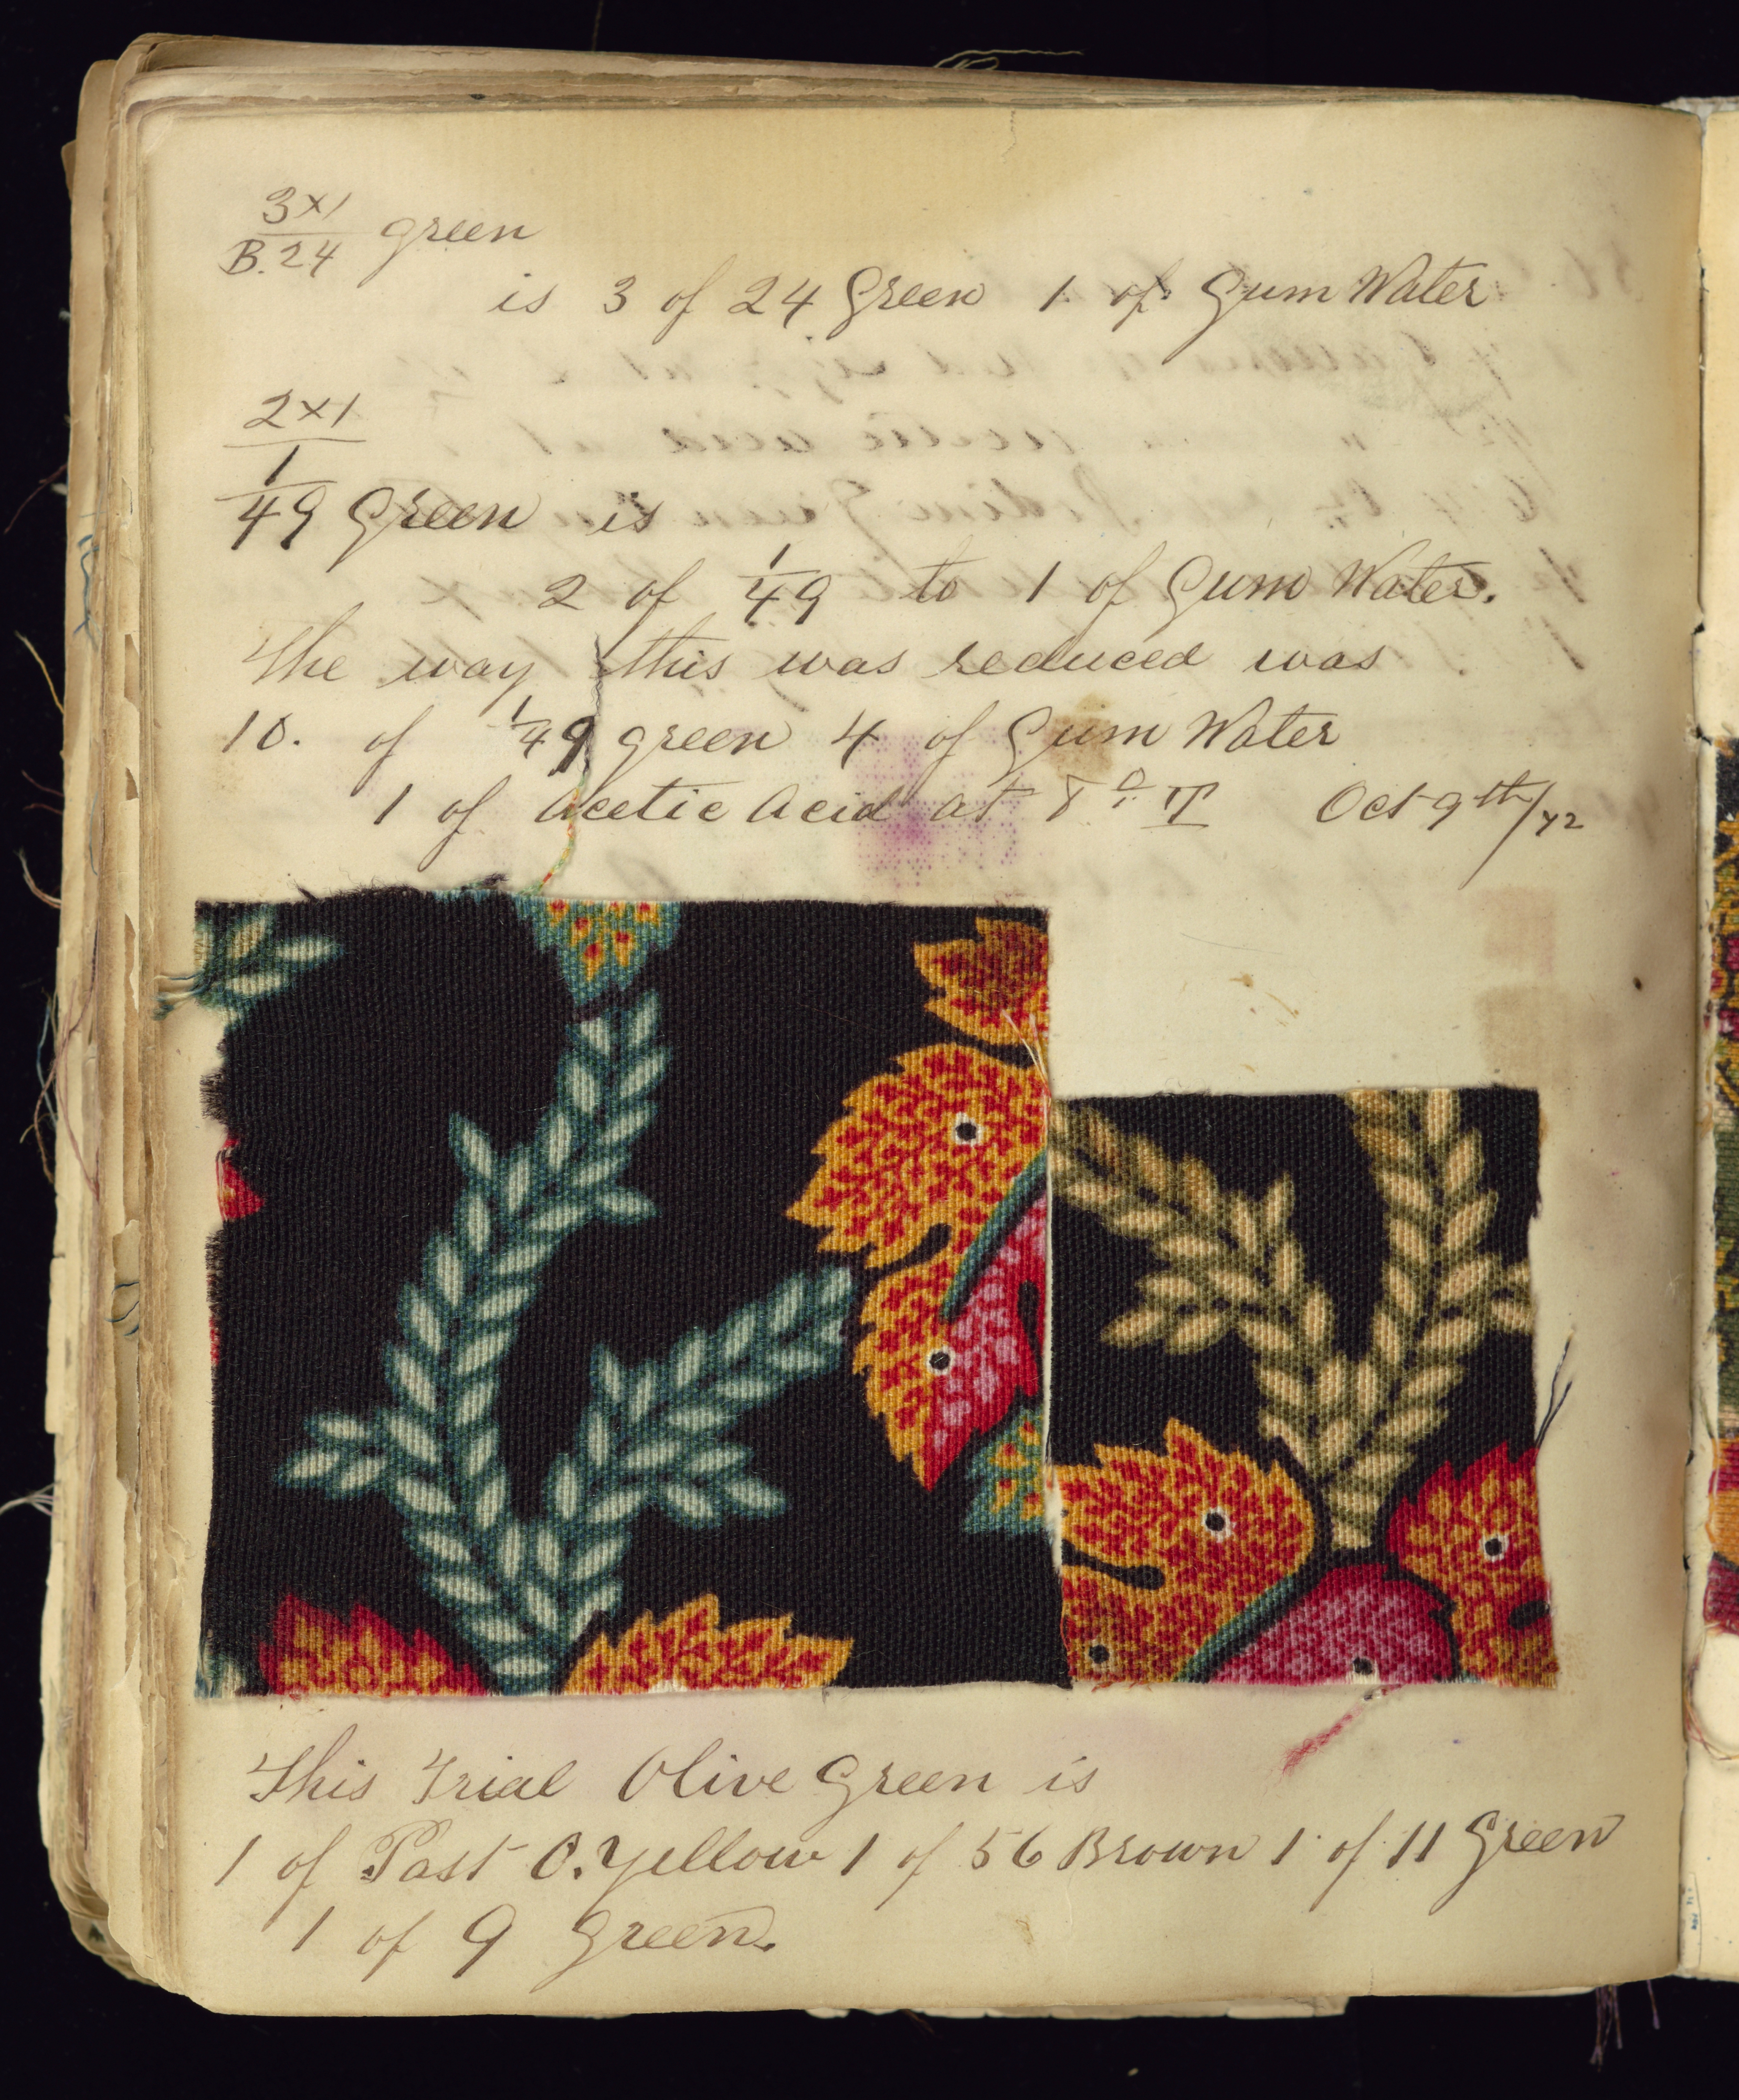 3x1
B.24 green
is 3 of 24 Green 1 of Gum Water
2x1
1
49 Green is
2 of 1/49 to 1 of Gum Water.
The way this was reduced was
10. of 1/49 green 4 of Gum Water
1 of Acetic Acid at 8º T Oct 9th/72
This Trial Olive Green is
1 of Past O. Yellow 1 of 56 Brown 1 of 11 Green
1 of 9 Green.